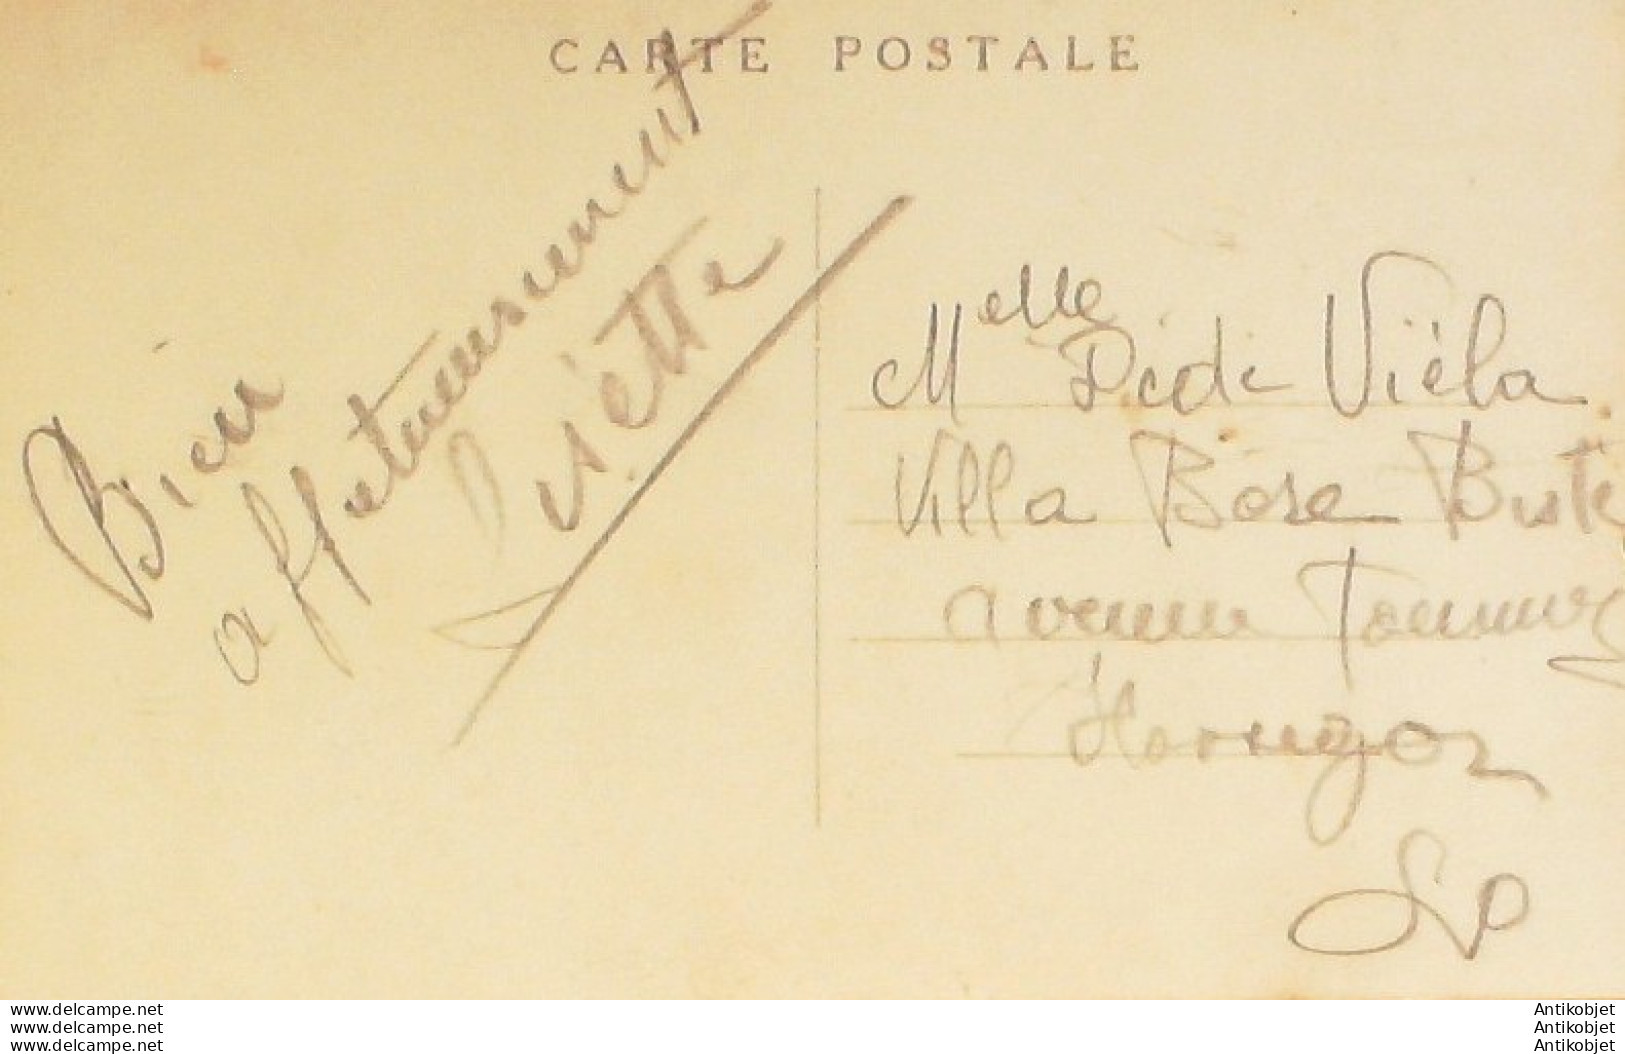 CARTE POSTALE
Bien
affetueusement
Lisette
Melle Dédé Vièla
Villa Bose
avenue
www.delcampe.net
www.delcampe.net
www.delcampe.net
Antikobjet
Antikobjet
Antikobjet